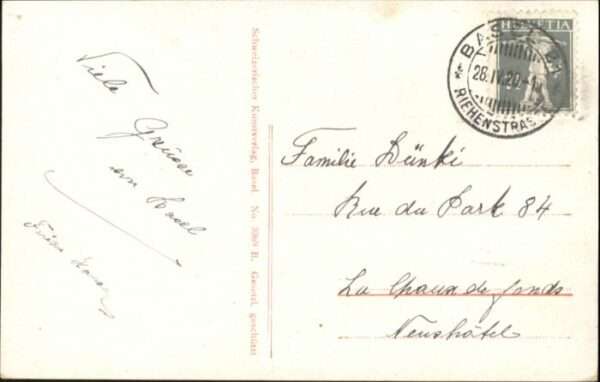 Viele
Grüsse
von Basel
Schweizerischer Kunstverlag, Basel No. B. Gesetzl. geschützt
HELVETIA
BASEL
28.IV.20-1
RIEHENSTRAS
Familie Dünki
Rue du Park 84
La Chaux de fonds
Neushâtel